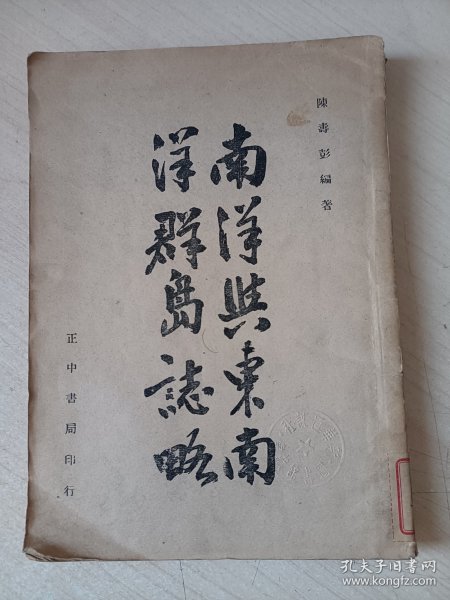 陳壽彭編著
南洋與東南
洋群島誌略
正中書局印行
孔夫子旧书网
www.kongfz.com